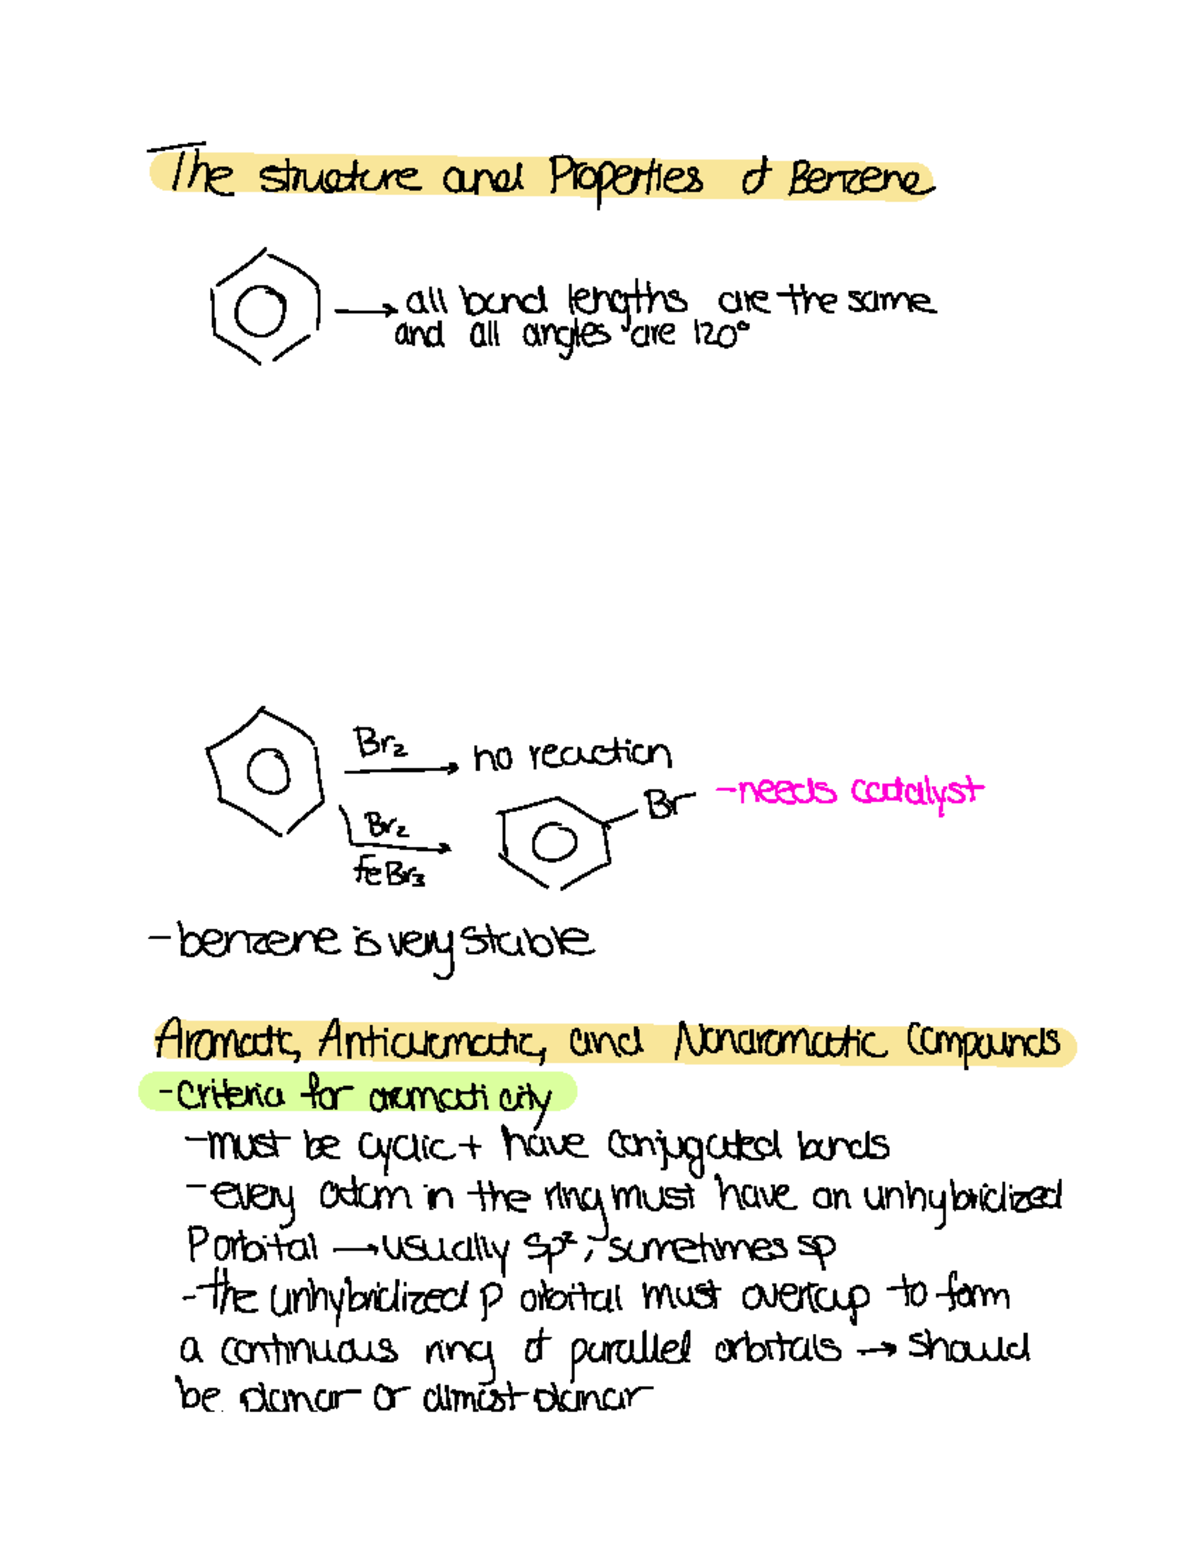 The structure and Properties of Benzene
→ all bond lengths are the same
and all angles are 120°
Br₂ → no reaction
Br -needs catalyst
Br₂
FeBr₃
-benzene is very stable
Aromatic, Antiaromatic, and Nonaromatic Compounds
-criteria for aromaticity
-must be cyclic + have conjugated bonds
-every atom in the ring must have an unhybridized
P orbital → usually sp², sometimes sp
-the unhybridized p orbital must overlap to form
a continuous ring of parallel orbitals → should
be planar or almost planar